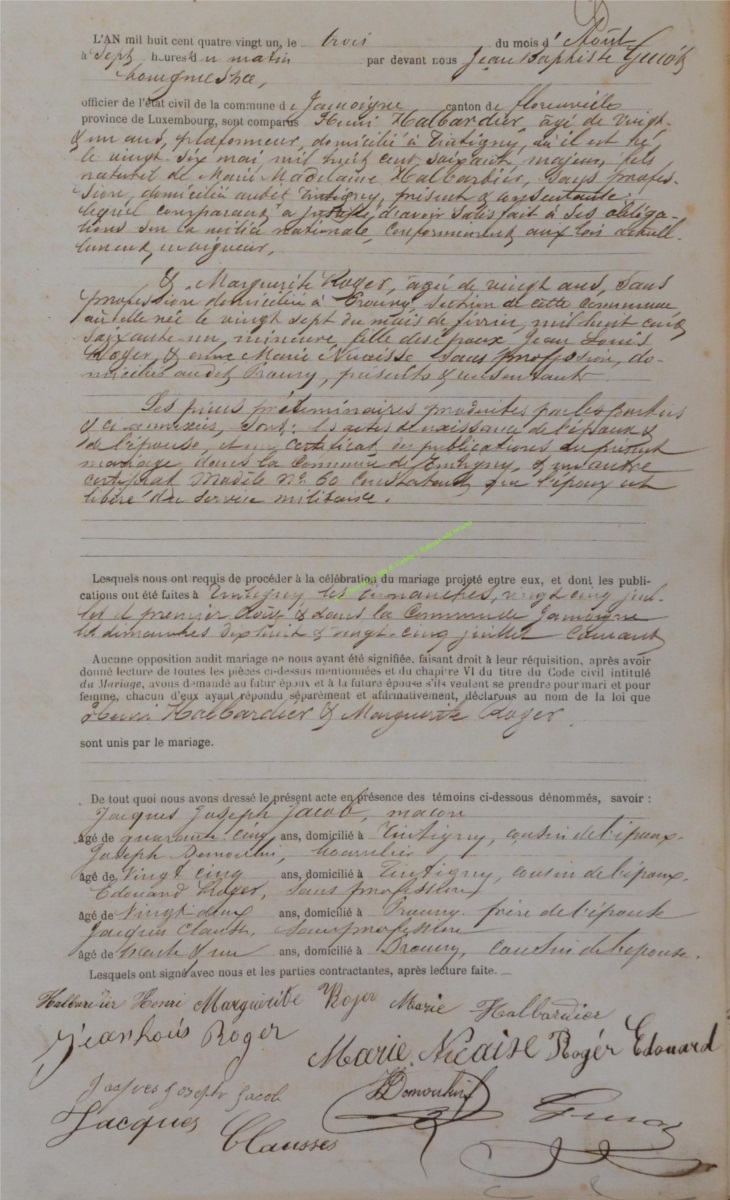 L'AN mil huit cent quatre vingt un, le trois du mois d' Août
à Sept heures du matin par devant nous Jean Baptiste
bourgmestre,
officier de l'état civil de la commune de Jamoigne canton de florenville
province de Luxembourg, sont comparus Henri Halbardier, âgé de vingt
& un ans, plafonneur, domicilié à Tintigny, où il est né
le vingt six mai mil huit cent soixante, majeur, fils
naturel de Marie Madelaine Halbardier, sans profes-
sion, domiciliée audit Tintigny, présente & consentante;
lequel comparant a justifié d'avoir satisfait à ses obliga-
tions sur la milice nationale, conformément aux lois actuel-
lement en vigueur,
Et Marguerite Roger, agée de vingt ans, sans
profession domiciliée à Prouvy, section de cette commune
où elle née le vingt sept du mois de février, mil huit cent
soixante un, mineure, fille des époux Jean Louis
Roger, & Marie Nicaisse sans profession, do-
miciliés audit Prouvy, présents & consentants.
Les pièces préliminaires produites par les parties
& ci annexées, sont: les actes de naissance de l'époux &
de l'épouse, et un certificat des publications du présent
mariage dans la Commune de Tintigny, & un autre
certificat Modèle N° 60 constatant que l'époux est
libéré du service militaire.
Lesquels nous ont requis de procéder à la célébration du mariage projeté entre eux, et dont les publi-
cations ont été faites à Tintigny les dimanches, vingt cinq juil-
let et premier Août & dans la Commune de Jamoigne
les dimanches dix huit & vingt cinq juillet courant
Aucune opposition audit mariage ne nous ayant été signifiée, faisant droit à leur réquisition, après avoir
donné lecture de toutes les pièces ci-dessus mentionnées et du chapitre VI du titre du Code civil intitulé
du Mariage, avons demandé au futur époux et à la future épouse s'ils veulent se prendre pour mari et pour
femme, chacun d'eux ayant répondu séparément et affirmativement, déclarons au nom de la loi que
Henri Halbardier & Marguerite Roger.
sont unis par le mariage.
De tout quoi nous avons dressé le présent acte en présence des témoins ci-dessous dénommés, savoir :
Jacques Joseph Jacob, maçon
âgé de quarante cinq ans, domicilié à Tintigny, cousin de l'époux.
Joseph Demoulin, bourrelier
âgé de Vingt cinq ans, domicilié à Tintigny, cousin de l'époux.
Edouard Roger, sans profession
âgé de Vingt deux ans, domicilié à Prouvy frère de l'épouse
Jacques Clausse, sans profession
âgé de trente & un ans, domicilié à Prouvy, cousin de l'épouse.
Lesquels ont signé avec nous et les parties contractantes, après lecture faite.
Halbardier Henri Marguerite Roger Marie Halbardier
Jean Louis Roger
Marie Nicaise Rogér Edouard
Jacques Joseph Jacob Demoulin
Jacques Clausses